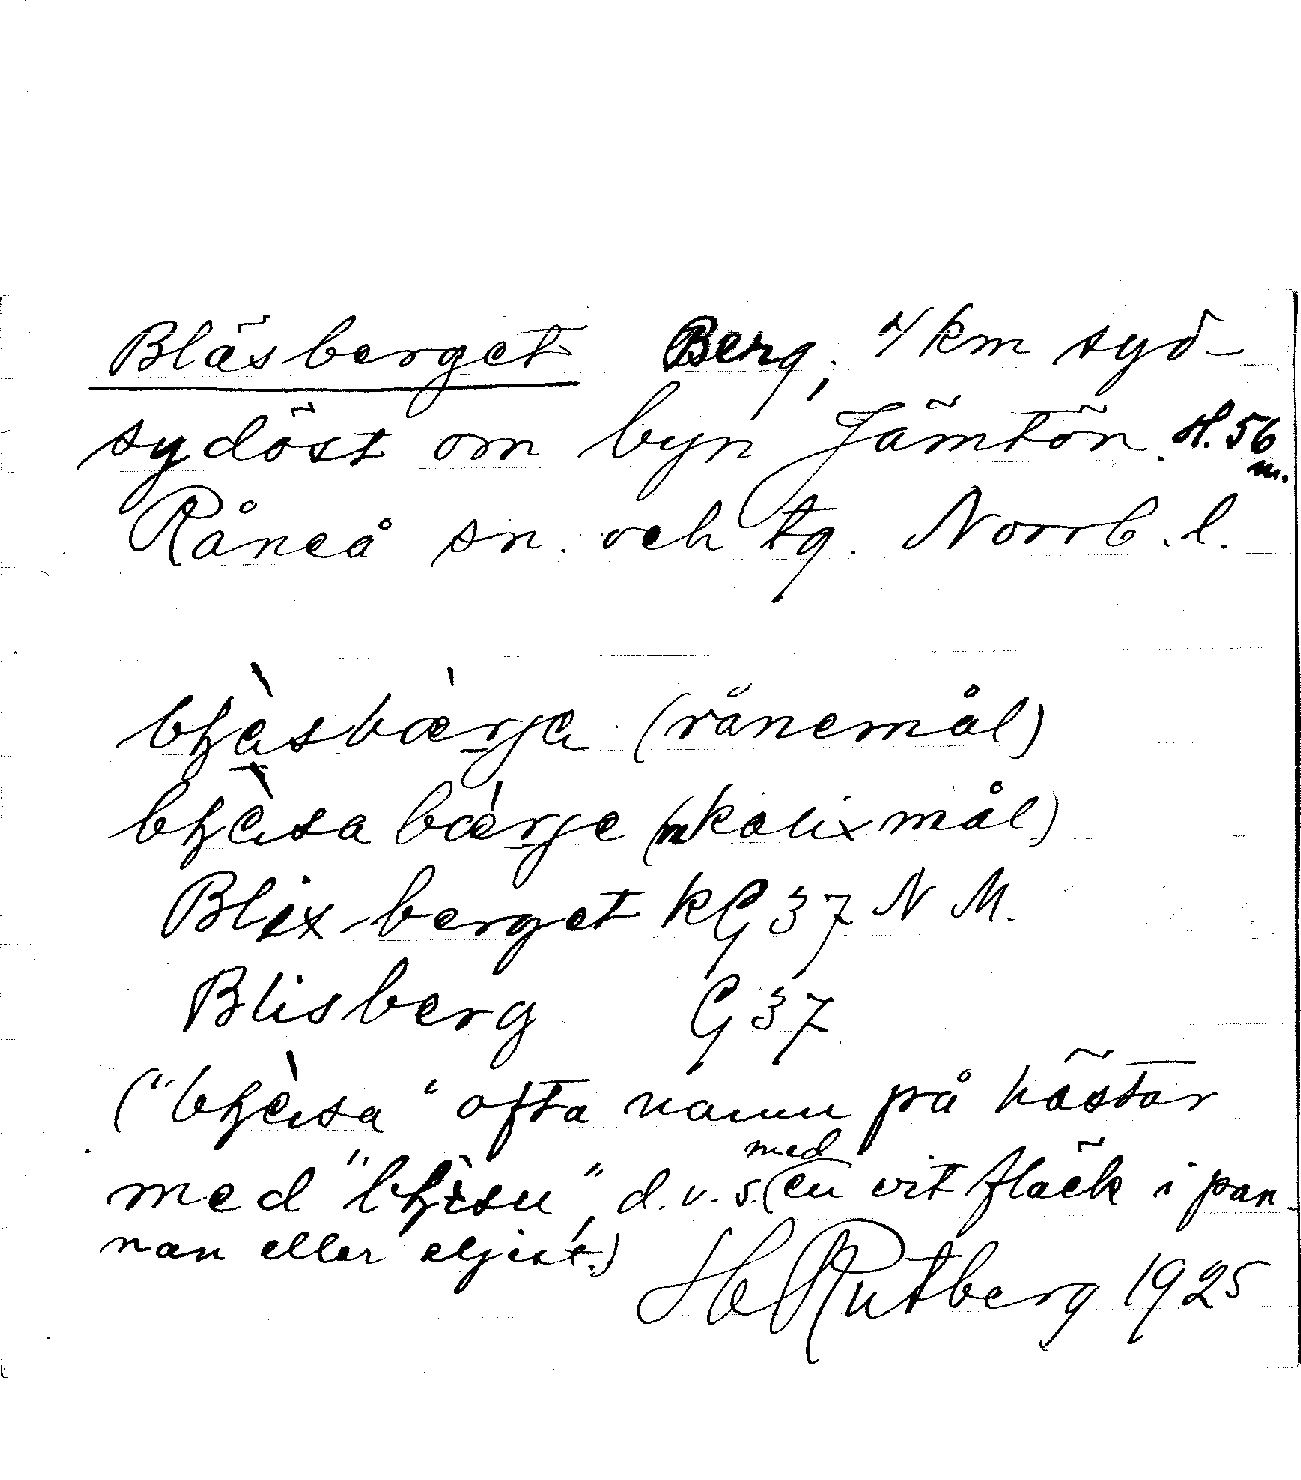 Bläsberget Berg, 4 km syd-
sydöst om byn Jämtön. H. 56 m.
Råneå sn. och tg. Norrb. l.
(rånemål)
(kalixmål)
Blixberget kG 37 N M.
Blisberg G 37
ofta namn på hästar
med d.v.s. med en vit fläck i pan-
nan eller eljest.)
H Rutberg 1925